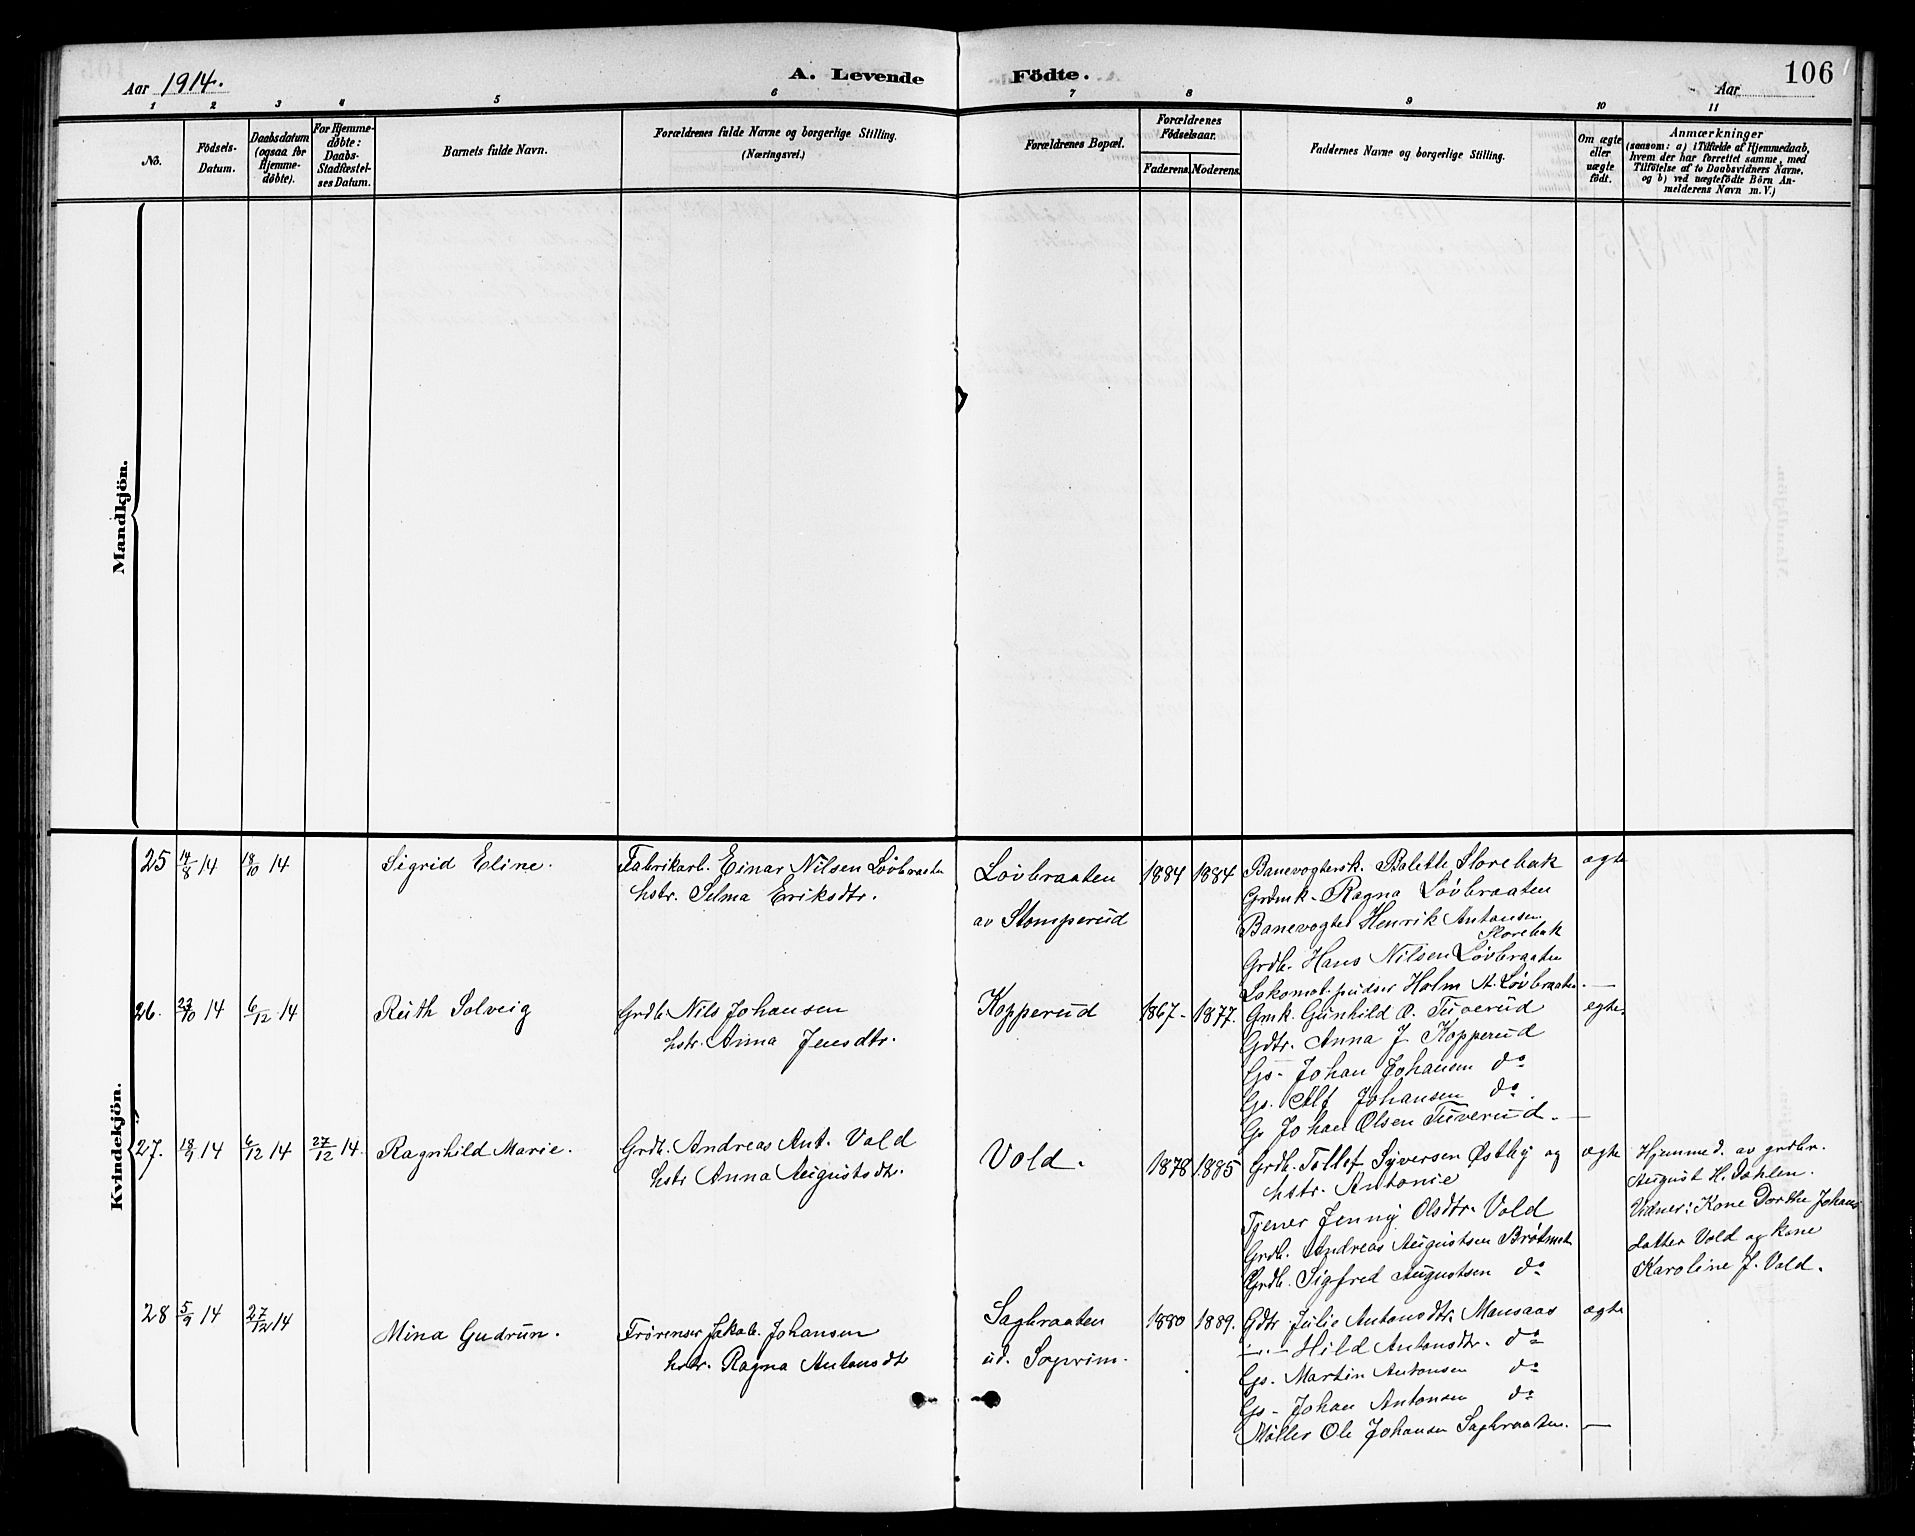 Aar 1914.
A. Levende Födte.
106
Aar
1 2 3 4 5 6 7 8 9 10 11
No.
Födsels-
Datum.
Daabsdatum
(ogsaa for
Hjemme-
døbte).
For Hjemme-
døbte:
Daabs-
Stadfæstel-
ses Datum.
Barnets fulde Navn.
Forældrenes fulde Navne og borgerlige Stilling.
(Næringsvei.)
Forældrenes Bopæl.
Forældrenes
Födselsaar.
Faderens. Moderens.
Faddernes Navne og borgerlige Stilling.
Om ægte
eller
uægte
födt.
Anmærkninger
(saasom: a) i Tilfælde af Hjemmedaab,
hvem der har forrettet samme, med
Tilföielse af to Daabsvidners Navne,
og b) ved uægtefödte Börn An-
melderens Navn m. V.)
Mandkjön.
Kvindekjön.
25 14/8 14 18/10 14
Sigrid Eline.
Fabrikarb. Einar Nilsen Løvbraaten
hstr. Selma Eriksdtr.
Løvbraaten
av Stomperud
1884 1884
Banevogtersk. Bolette Storebak
Grdmk. Ragna Løvbraaten
Banevogter Henrik Antonsen
Storebak
Grdb. Hans Nilsen Løvbraaten
Lokomot. pudser Holm N. Løvbraaten. —
ægte
26. 23/10 14 6/12 14
Ruth Solveig
Grdb. Nils Johansen
hstr. Anna Jensdtr.
Kopperud
1867 - 1877.
Gmk. Gunhild O. Tuverud
Gdtr. Anna J. Kopperud
Gs. Johan Johansen do
Gs. Alf Johansen do.
Gs Johan Olsen Tuverud. —
egte.
27. 18/9 14 6/12 14 27/12 14.
Ragnhild Marie.
Grdb. Andreas Ant. Vold
hstr Anna Augustsdtr.
Vold.
1878 1885
Grdb. Tollef Syversen Østby og
hstr. Antonie
Tjener Jenny Olsdtr. Vold
Grdb. Andreas Augustsen Bråtmet
Grdb. Sigfred Augustsen do
ægte
Hjemmed. av grdbr.
August H. Dahlen.
Vidner: Kone Dorthe Johans
datter Vold og kone
Karoline J. Vold.
28 5/9 14 27/12 14
Mina Gudrun.
Frørenser Jakob Johansen
hstr. Ragna Antonsdtr
Sagbraaten
ud. Soprim.
1880 1889.
Gdtr Julie Antonsdtr. Mansaas
—"— Hild Antonsdtr. do
Gs. Martin Antonsen do
Gs - Johan Antonsen do
Møller Ole Johansen Sagbraaten. —
ægte